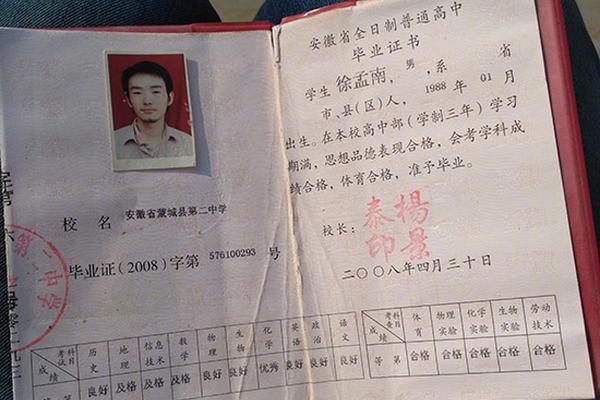 校名 安徽省蒙城县第二中学
毕业证(2008)字第 576100293 号
考试科目 历史 地理 信息技术 数学 物理 生物 化学 英语 政治 语文
成绩 良好 及格 及格 及格 良好 良好 优秀 良好 良好 良好
安徽省全日制普通高中
毕业证书
学生 徐孟南,男,系 省
市、县(区)人,1988 年 01 月
出生。在本校高中部(学制三年)学习
期满,思想品德表现合格,会考学科成
绩合格,体育合格,准予毕业。
校长:
楊景
泰印
二〇〇八年四月三十日
考查科目 体育 物理实验 化学实验 生物实验 劳动技术
成绩
等第 合格 合格 合格 合格 合格